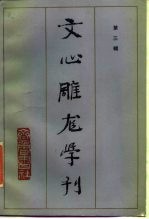 第三辑
文心雕龙学刊